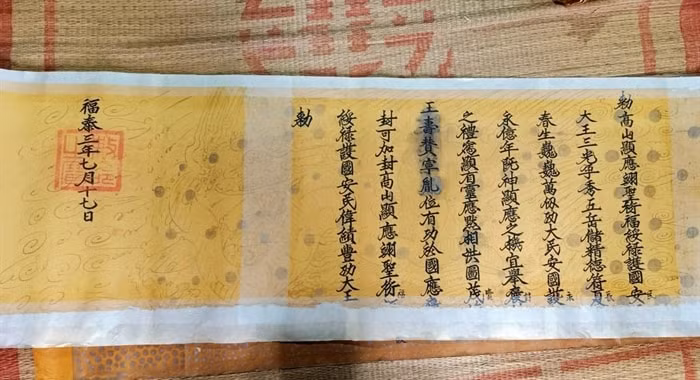 勅高山顯應翊聖衍福綏祿護國安
大王三光孕秀五岳儲精德符
春生巍巍萬仭功大民安國
永億年神顯應之宜舉褒
之禮爲顯有靈應默相洪圖茂
王壽賛寧胤位有功於國應
封可加封高山顯應翊聖衍
綏祿護國安民偉績豊功大王
勅
福泰三年七月十七日